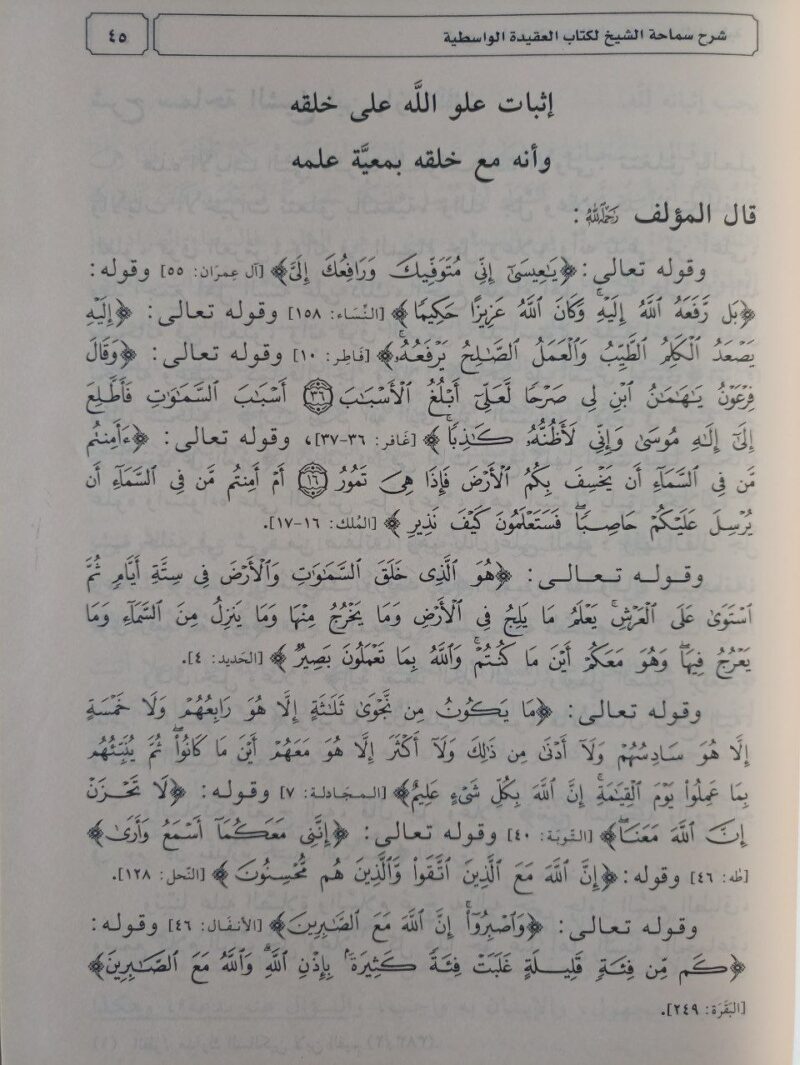 شرح سماحة الشيخ لكتاب العقيدة الواسطية
٤٥
إثبات علو اللَّه على خلقه
وأنه مع خلقه بمعيَّة علمه
قال المؤلف رَحِمَهُ اللَّهُ :
وقوله تعالى: ﴿يَٰعِيسَىٰٓ إِنِّي مُتَوَفِّيكَ وَرَافِعُكَ إِلَىَّ﴾ [آل عِمرَان: ٥٥] وقوله:
﴿بَل رَّفَعَهُ ٱللَّهُ إِلَيْهِۚ وَكَانَ ٱللَّهُ عَزِيزًا حَكِيمًا﴾ [النِّسَاء: ١٥٨] وقوله تعالى: ﴿إِلَيْهِ
يَصْعَدُ ٱلْكَلِمُ ٱلطَّيِّبُ وَٱلْعَمَلُ ٱلصَّٰلِحُ يَرْفَعُهُۥۚ﴾ [فَاطِر: ١٠] وقوله تعالى: ﴿وَقَالَ
فِرْعَوْنُ يَٰهَٰمَٰنُ ٱبْنِ لِى صَرْحًا لَّعَلِّىٓ أَبْلُغُ ٱلْأَسْبَٰبَ ٣٦ أَسْبَٰبَ ٱلسَّمَٰوَٰتِ فَأَطَّلِعَ
إِلَىٰٓ إِلَٰهِ مُوسَىٰ وَإِنِّى لَأَظُنُّهُۥ كَٰذِبًاۚ﴾ [غَافر: ٣٦-٣٧]، وقوله تعالى: ﴿ءَأَمِنتُم
مَّن فِى ٱلسَّمَآءِ أَن يَخْسِفَ بِكُمُ ٱلْأَرْضَ فَإِذَا هِىَ تَمُورُ ١٦ أَمْ أَمِنتُم مَّن فِى ٱلسَّمَآءِ أَن
يُرْسِلَ عَلَيْكُمْ حَاصِبًاۖ فَسَتَعْلَمُونَ كَيْفَ نَذِيرِ﴾ [المُلك: ١٦-١٧].
وقوله تعالى: ﴿هُوَ ٱلَّذِى خَلَقَ ٱلسَّمَٰوَٰتِ وَٱلْأَرْضَ فِى سِتَّةِ أَيَّامٍ ثُمَّ
ٱسْتَوَىٰ عَلَى ٱلْعَرْشِۚ يَعْلَمُ مَا يَلِجُ فِى ٱلْأَرْضِ وَمَا يَخْرُجُ مِنْهَا وَمَا يَنزِلُ مِنَ ٱلسَّمَآءِ وَمَا
يَعْرُجُ فِيهَاۖ وَهُوَ مَعَكُمْ أَيْنَ مَا كُنتُمْۚ وَٱللَّهُ بِمَا تَعْمَلُونَ بَصِيرٌ﴾ [الحَديد: ٤].
وقوله تعالى: ﴿مَا يَكُونُ مِن نَّجْوَىٰ ثَلَٰثَةٍ إِلَّا هُوَ رَابِعُهُمْ وَلَا خَمْسَةٍ
إِلَّا هُوَ سَادِسُهُمْ وَلَآ أَدْنَىٰ مِن ذَٰلِكَ وَلَآ أَكْثَرَ إِلَّا هُوَ مَعَهُمْ أَيْنَ مَا كَانُوا۟ۖ ثُمَّ يُنَبِّئُهُم
بِمَا عَمِلُوا۟ يَوْمَ ٱلْقِيَٰمَةِۚ إِنَّ ٱللَّهَ بِكُلِّ شَىْءٍ عَلِيمٌ﴾ [المجَادلة: ٧] وقوله: ﴿لَا تَحْزَنْ
إِنَّ ٱللَّهَ مَعَنَاۖ﴾ [التّوبَة: ٤٠] وقوله تعالى: ﴿إِنَّنِى مَعَكُمَآ أَسْمَعُ وَأَرَىٰ﴾
[طٰه: ٤٦] وقوله: ﴿إِنَّ ٱللَّهَ مَعَ ٱلَّذِينَ ٱتَّقَوا۟ وَّٱلَّذِينَ هُم مُّحْسِنُونَ﴾ [النّحل: ١٢٨].
وقوله تعالى: ﴿وَٱصْبِرُوٓا۟ۚ إِنَّ ٱللَّهَ مَعَ ٱلصَّٰبِرِينَ﴾ [الأنفَال: ٤٦] وقوله:
﴿كَم مِّن فِئَةٍ قَلِيلَةٍ غَلَبَتْ فِئَةً كَثِيرَةًۢ بِإِذْنِ ٱللَّهِۗ وَٱللَّهُ مَعَ ٱلصَّٰبِرِينَ﴾
[البَقَرَة: ٢٤٩].